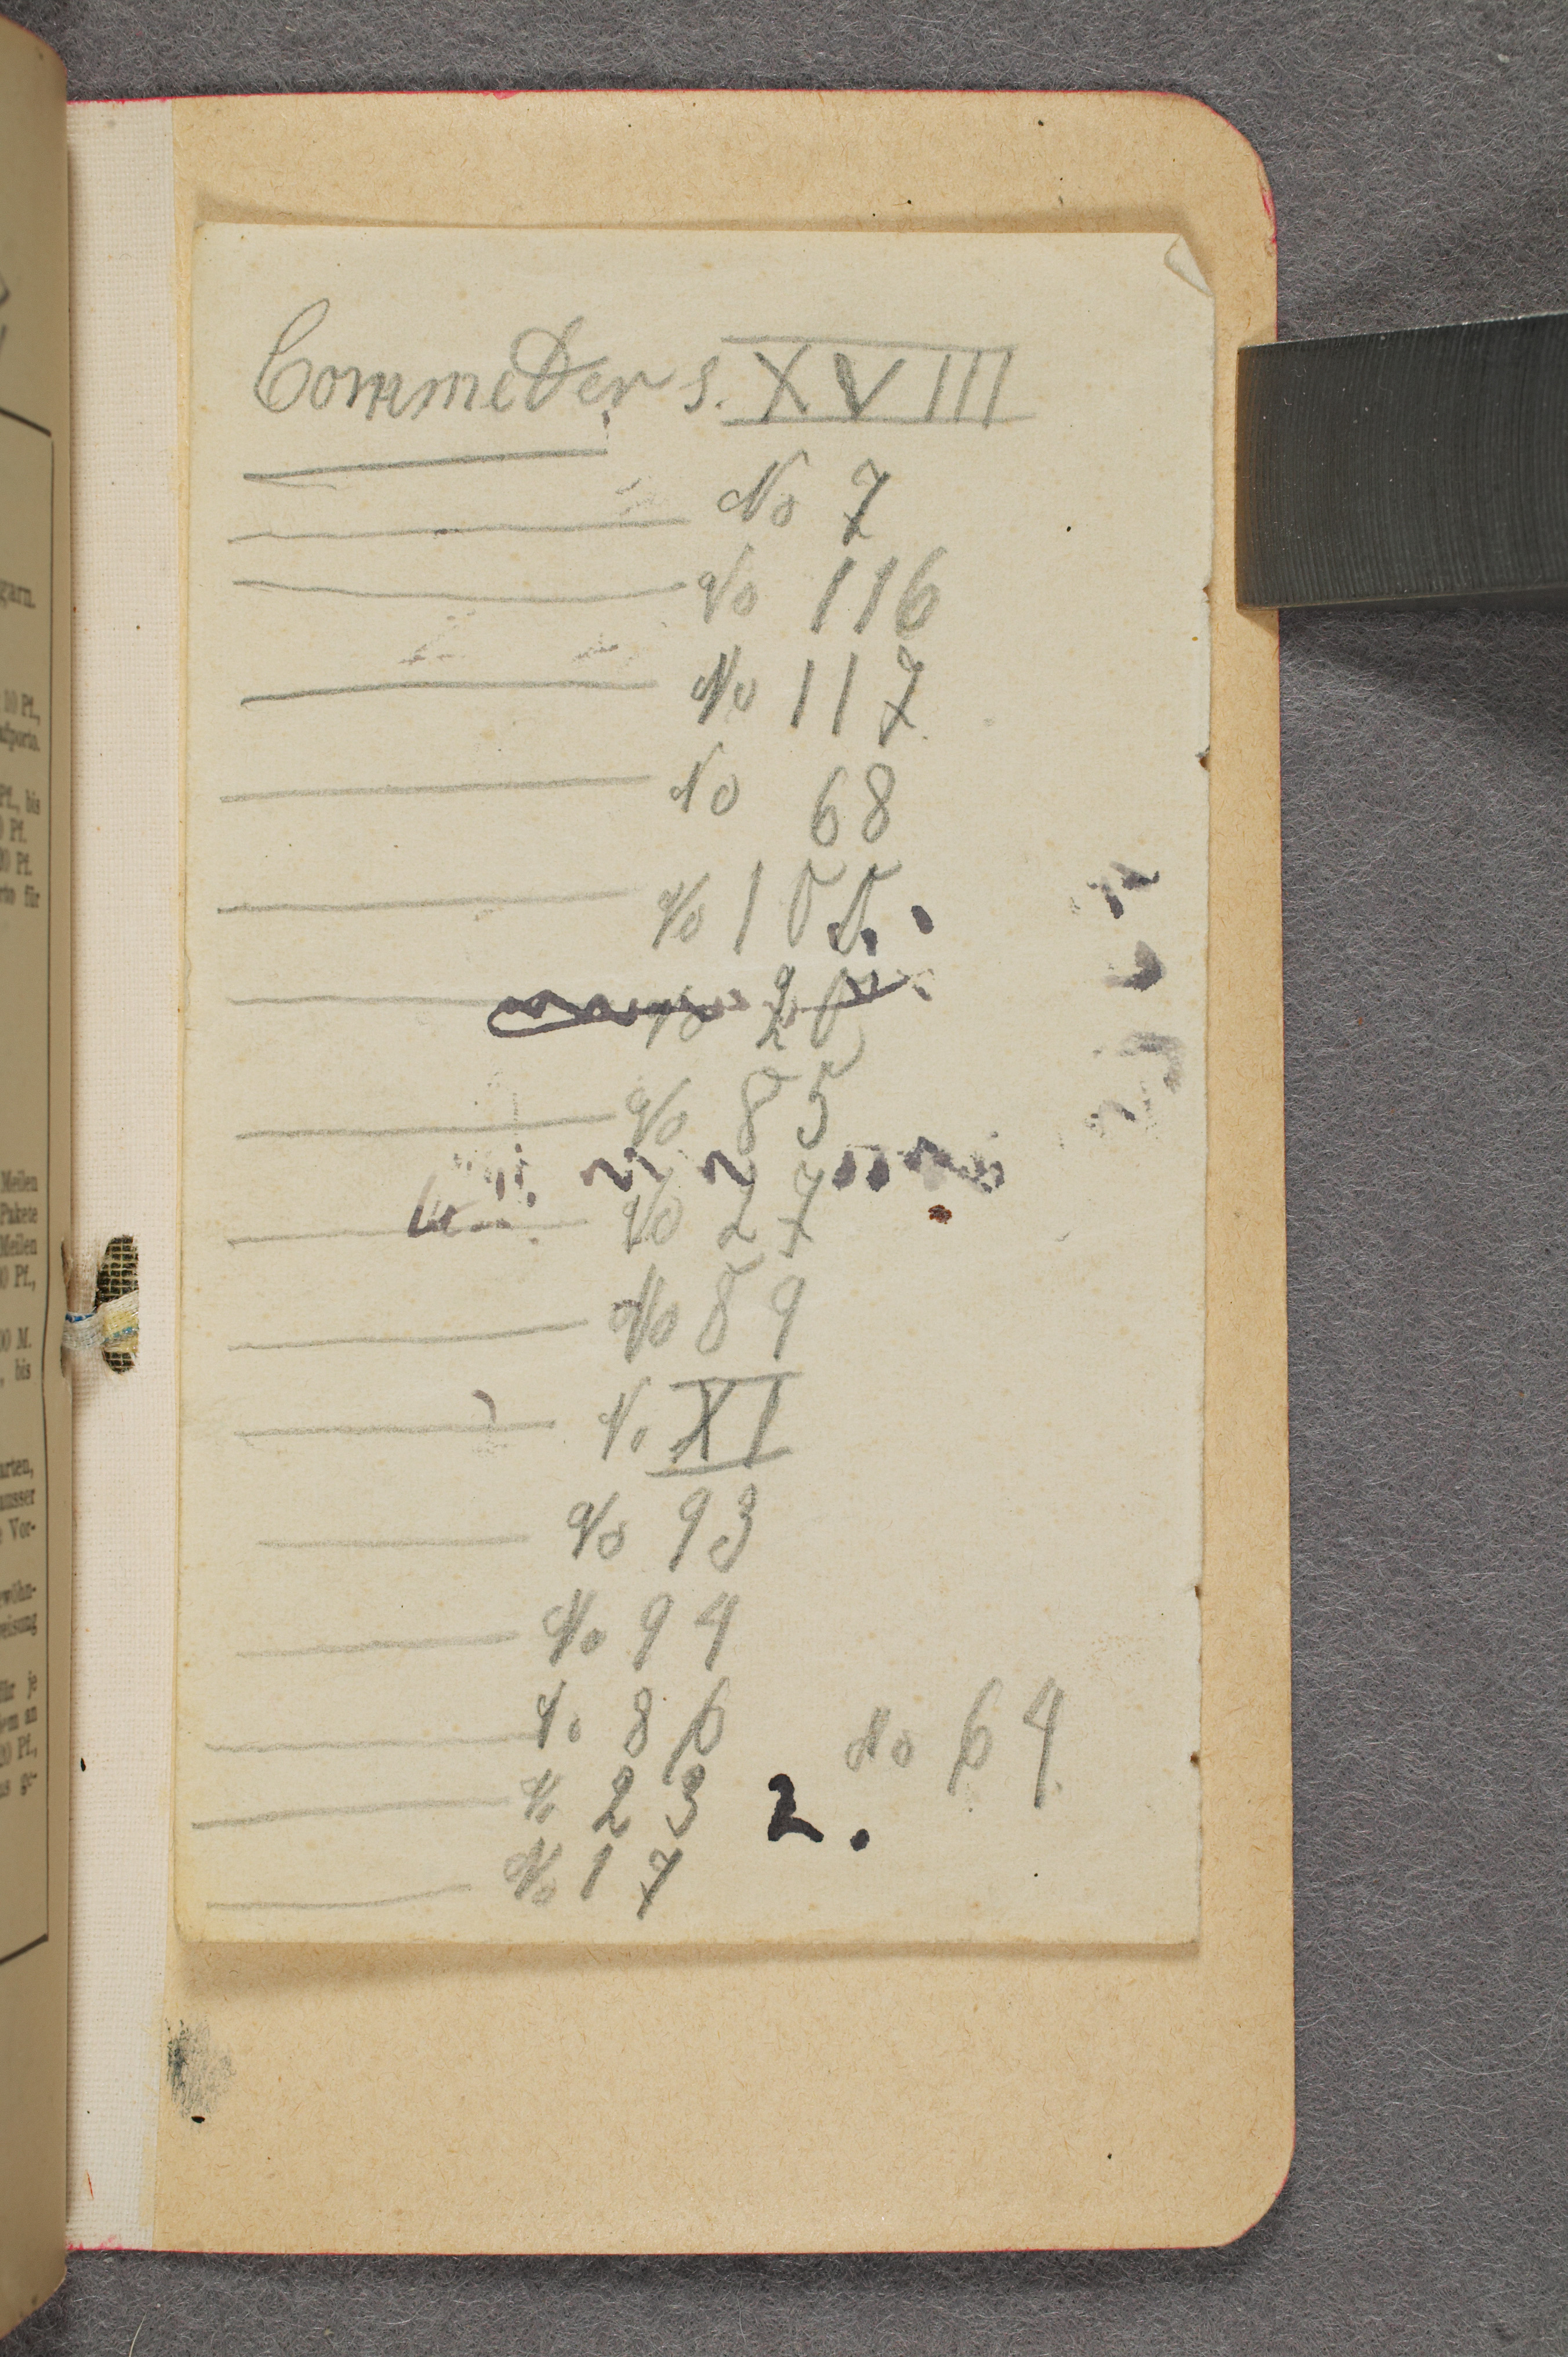 CommeDer S. XVIII
No 7
No 116
No 117
No 68
No 100
No 20
No 85
No 27
No 89
No XI
No 93
No 94
No 86
No 64
No 23 2.
No 17
garn.
10 Pf.,
Pf., bis
0 Pf.
rto für
Meilen
Pakete
Meilen
0 Pf.,
00 M.
, bis
arten,
ausser
Vor-
ewöhn-
eisung
für je
dem an
20 Pf.,